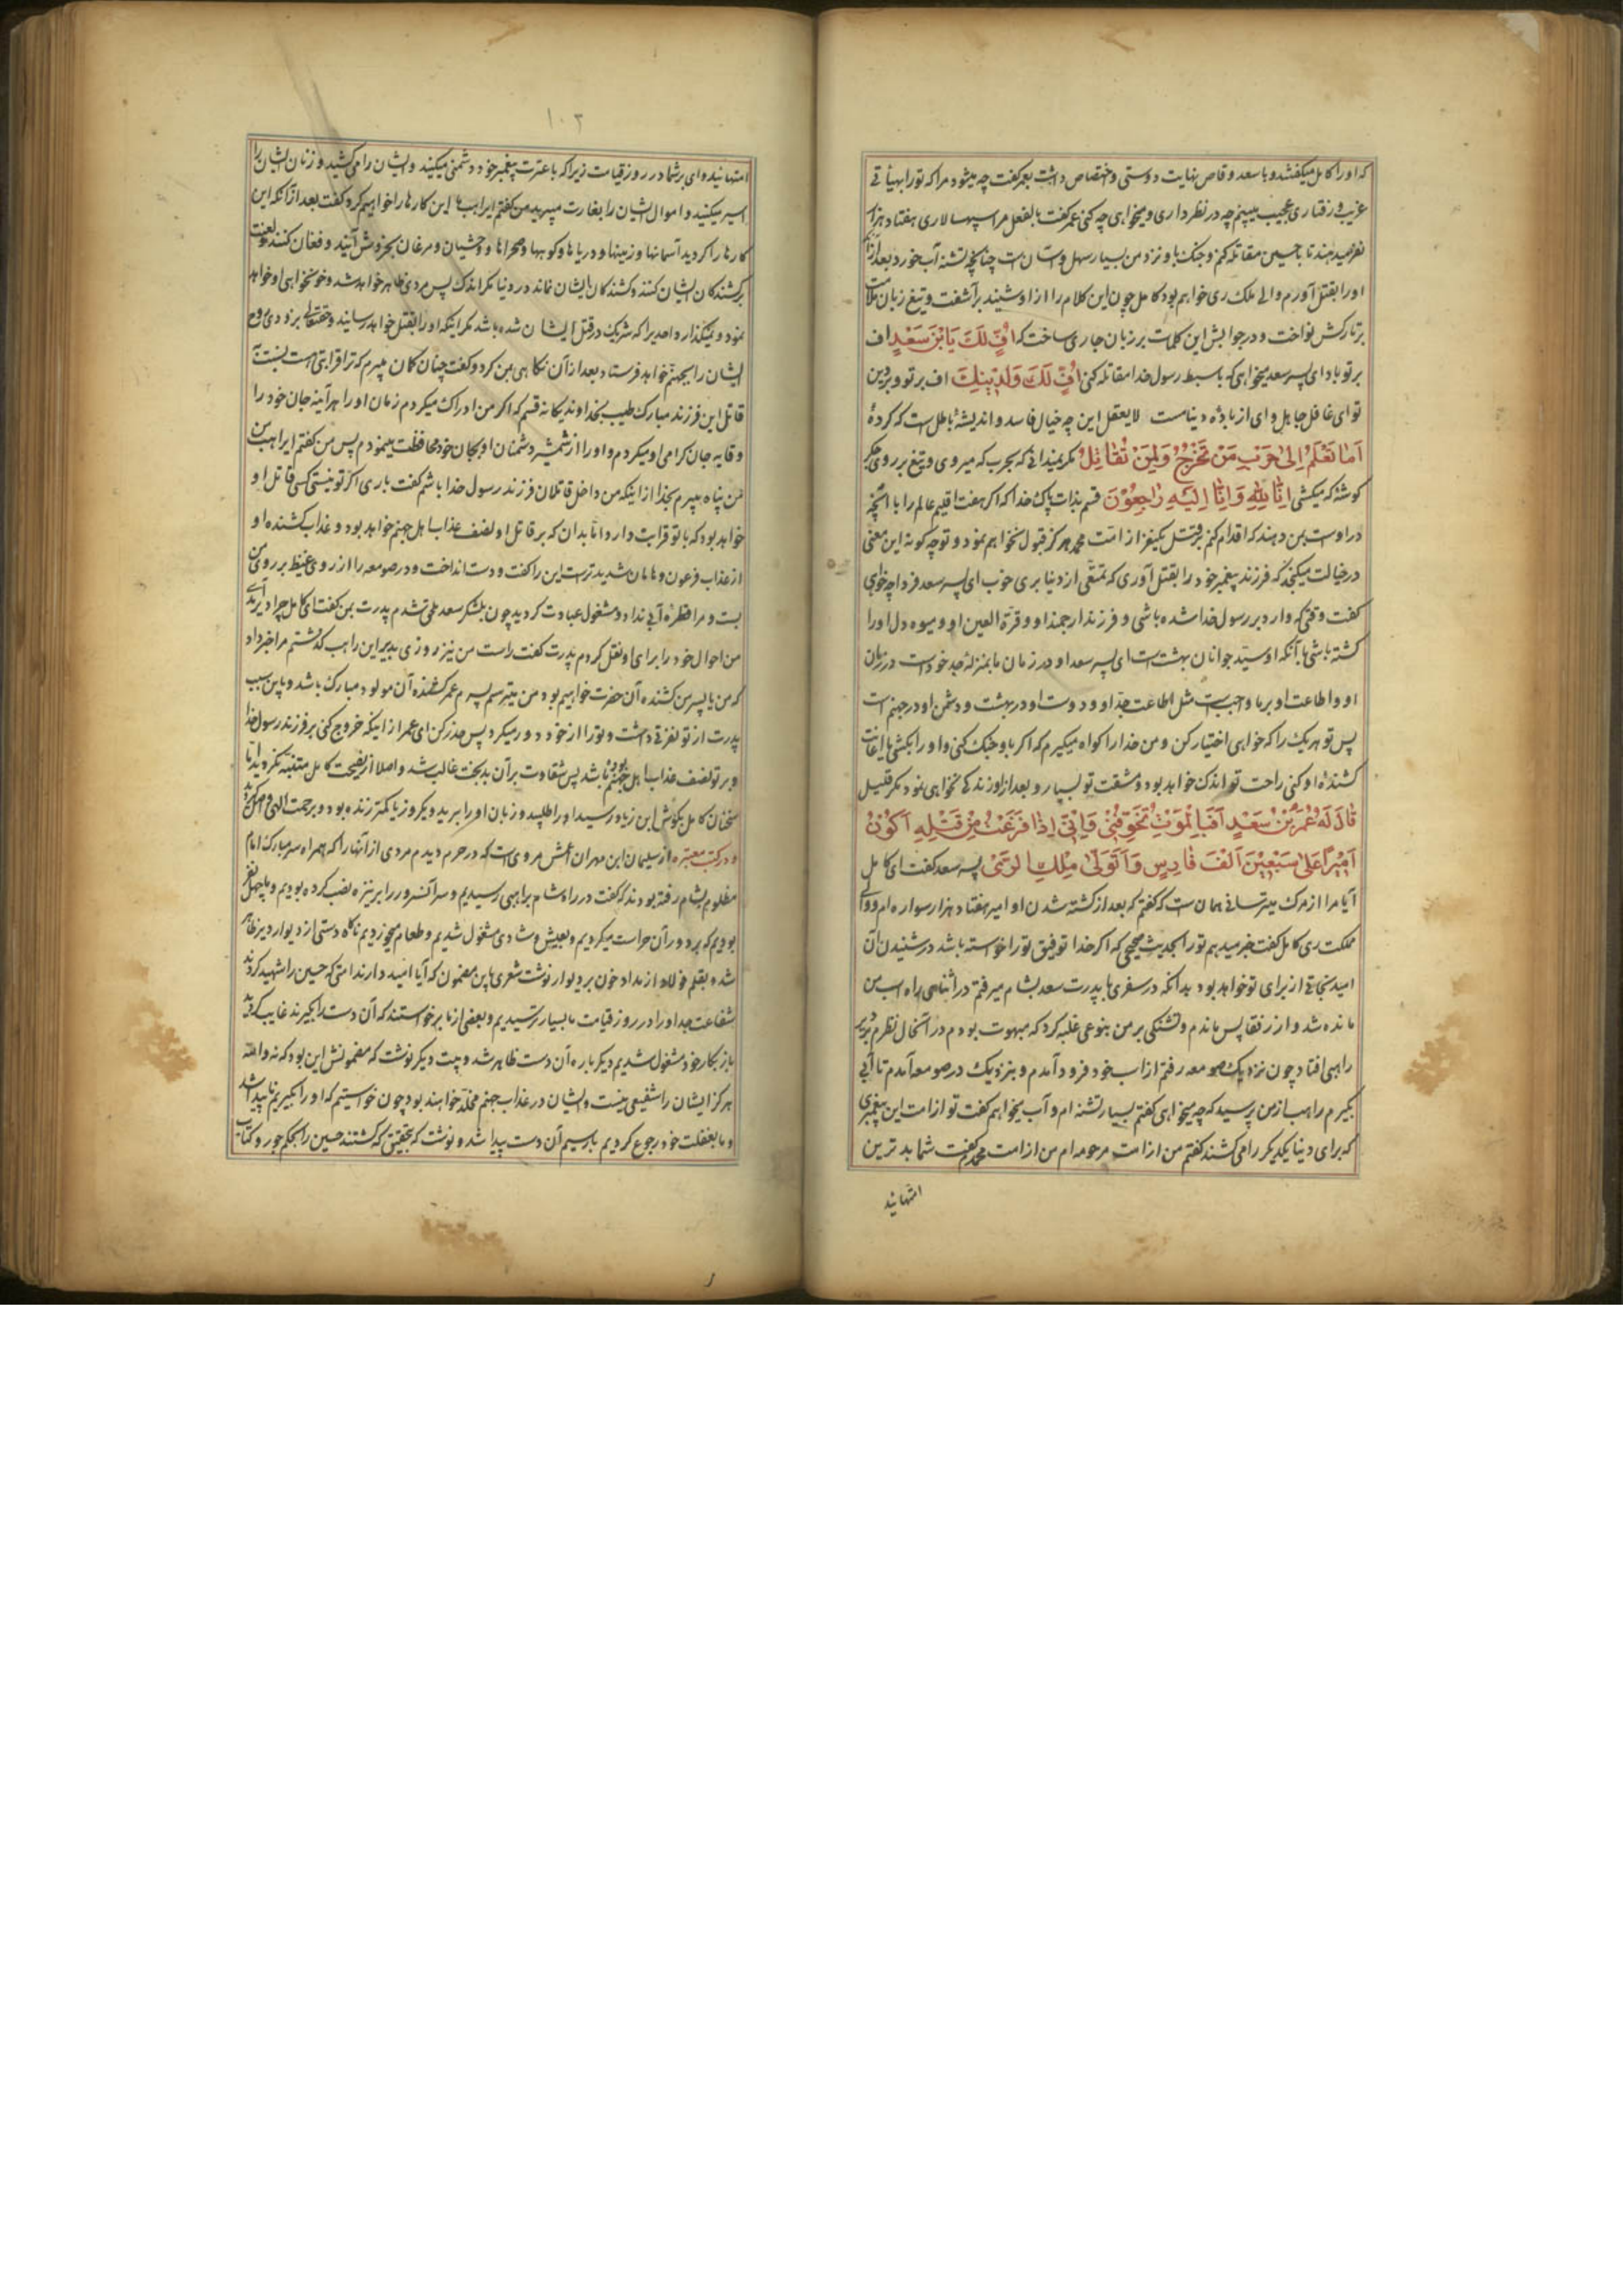 که او را کامل میگفتند و با سعد وقاص نهایت دوستی و اختصاص داشت بعمر گفت چه میشود مرا که تو را بهیأتی
غریب و رفتاری عجیب میبینم چه در نظر داری و میخواهی چه کنی عمر گفت بالفعل مرا سپهسالاری هفتاد هزار
نفر میدهند تا با حسین مقاتله کنم و جنک با او نزد من بسیار سهل و آسان است چنانچه تشنه آب خورد بعد از آنکه
او را بقتل آورم والی ملک ری خواهم بود کامل چون این کلام را از او شنید برآشفت و تیغ زبان ملامت
بر تارکش نواخت و در جوابش این کلمات بر زبان جاری ساخت که اُفٍّ لَكَ يَا بْنَ سَعْدٍ اف
بر تو باد ای پسر سعد میخواهی که با سبط رسول خدا مقاتله کنی اُفٍّ لَكَ وَلِدِينِكَ اف بر تو و بر دین
تو ای غافل جاهل و ای از باده دنیا مست لا یعقل این چه خیال فاسد و اندیشهٔ باطل است که کردهٔ
اَمَا تَعْلَمُ اِلىٰ حَرْبِ مَنْ تَخْرُجُ وَلِمَنْ تُقَاتِلُ مکر نمیدانی که بحرب که میروی و تیغ بر روی جکر
کوشهٔ که میکشی اِنَّا لِلّٰهِ وَاِنَّا اِلَيْهِ رَاجِعُوْنَ قسم بذات پاک خدا که اکر هفت اقلیم عالم را با آنچه
در او است بمن دهند که اقدام کنم بقتل یکنفر از امت محمد هرکز قبول نخواهم نمود و تو چه کونه این معنی
در خیالت میکنجد که فرزند پیغمبر خود را بقتل آوری که تمتعی از دنیا بری خوب ای پسر سعد فردا چه خواهی
کفت وقتی که وارد بر رسول خدا شده باشی و فرزند ارجمند او و قرة العین او و میوه دل او را
کشته باشی با آنکه او سید جوانان بهشت است ای پسر سعد او در زمان ما بمنزله جد خود است در زمان
او و اطاعت او بر ما واجب است مثل اطاعت جد او و دوست او در بهشت و دشمن او در جهنم است
پس تو هر یک را که خواهی اختیار کن و من خدا را کواه میکیرم که اکر با او جنک کنی و او را بکشی یا اعانت
کشندهٔ او کنی راحت تو اندک خواهد بود و مشقت تو بسیار و بعد از او زندکی نخواهی نمود مکر قلیل
قَالَ لَهُ عُمَرُ بْنُ سَعْدٍ اَفَبِالْمَوْتِ تُخَوِّفُنِيْ وَاِنِّيْ اِذَا فَرَغْتُ مِنْ قَتْلِهِ اَكُوْنُ
اَمِيْرًا عَلىٰ سَبْعِيْنَ اَلْفَ فَارِسٍ وَاَتَوَلّٰى مُلْكَ الرَّىِ پسر سعد کفت ای کامل
آیا مرا از مرک میترسانی همان است که کفتم که بعد از کشته شدن او امیر هفتاد هزار سواره ام و والی
مملکت ری کامل کفت خبر میدهم تو را بحدیث صحیحی که اکر خدا توفیق تو را خواسته باشد در شنیدن آن
امید نجاتی از برای تو خواهد بود بدانکه در سفری با پدرت سعد بشام میرفتم در اثنای راه اسب من
مانده شد و از رفقا پس ماندم و تشنکی بر من بنوعی غلبه کرد که مبهوت بودم در آنحال نظرم بدیر
راهبی افتاد چون نزدیک صومعه رفتم از اسب خود فرود آمدم و بنزدیک در صومعه آمدم تا آبی
بکیرم راهب از من پرسید که چه میخواهی کفتم بسیار تشنه ام و آب میخواهم کفت تو از امت این پیغمبری
که برای دنیا یکدیکر را می کشند کفتم من از امت مرحومه ام من از امت محمدم کفت شما بدترین
امتهائید
۱۰۲
امتهائید وای بر شما در روز قیامت زیرا که با عترت پیغمبر خود دشمنی میکنید و ایشان را می کشید و زنان ایشان را
اسیر میکنید و اموال ایشان را بغارت میبرید من کفتم ای راهب ما این کارها را خواهیم کرد کفت بعد از آنکه این
کارها را کردید آسمانها و زمینها و دریاها و کوهها و صحراها و وحشیان و مرغان بخروش آیند و فغان کنند و لعنت
بر کشندکان ایشان کنند و کشندکان ایشان نماند در دنیا مکر اندک پس مردی ظاهر خواهد شد و خونخواهی او خواهد
نمود و نمیکذارد احدیرا که شریک در قتل ایشان شده باشد مکر اینکه او را بقتل خواهد رسانید و حقتعالی بزودی روح
ایشان را بجهنم خواهد فرستاد بعد از آن نکاهی بمن کرد و کفت چنان کمان میبرم که ترا قرابتی هست نسبت به
قاتل این فرزند مبارک طیب بخداوند یکانه قسم که اکر من ادراک میکردم زمان او را هر آینه جان خود را
وقایه جان کرامی او میکردم و او را از شمشیر دشمنان او بجان خود محافظت مینمودم پس من کفتم ای راهب من
من پناه میبرم بخدا از اینکه من داخل قاتلان فرزند رسول خدا باشم کفت باری اکر تو نیستی کسی قاتل او
خواهد بود که با تو قرابت دارد و انا بدان که بر قاتل او نصف عذاب اهل جهنم خواهد بود و عذاب کشنده او
از عذاب فرعون و هامان شدیدتر است این را کفت و دست انداخت و در صومعه را از روی غیظ بر روی من
بست و مرا قطرهٔ آبی نداد و مشغول عبادت کردید چون بلشکر سعد ملحق شدم پدرت بمن کفت ای کامل چرا دیر آمدی
من احوال خود را برای او نقل کردم پدرت کفت راست من نیز روزی بدیر این راهب کذشتم مرا خبر داد
که من یا پسر من کشنده آن حضرت خواهیم بود من میترسم پسرم عمر کشنده آن مولود مبارک باشد و باین سبب
پدرت از تو نفرتی داشت و تو را از خود دور میکرد پس حذر کن ای عمر از اینکه خروج کنی بر فرزند رسول خدا
و بر تو نصف عذاب اهل جهنم بوده باشد پس شقاوت بر آن بدبخت غالب شد و اصلا از نصیحت کامل متنبه نکردید تا
سخنان کامل بکوش ابن زیاد رسید او را طلبید و زبان او را برید و یکروز یا کمتر زنده بود و برحمت الهی واصل کردید
و در کتب معتبره از سلیمان ابن مهران اعمش مرویست که در حرم دیدم مردی از آنها را که همراه سر مبارک امام
مظلوم بشام رفته بودند که کفت در راه شام براهبی رسیدیم و سر آن سرور را بر نیزه نصب کرده بودیم و ما چهل نفر
بودیم که بر دور آن حراست میکردیم و بعیش و شادی مشغول شدیم و طعام میخوردیم ناکاه دستی از دیوار دیر ظاهر
شده بقلم فولاد از مداد خون بر دیوار نوشت شعری باین مضمون که آیا امید دارند امتی که حسین را شهید کردند
شفاعت جد او را در روز قیامت ما بسیار ترسیدیم و بعضی از ما برخواستند که آن دست را بکیرند غایب کردید
باز بکار خود مشغول شدیم دیکر باره آن دست ظاهر شد و بیت دیکر نوشت که مضمونش این بود که نه والله
هرکز ایشان را شفیعی نیست و ایشان در عذاب جهنم مخلد خواهند بود چون خواستیم که او را بکیریم ناپیدا شد
و ما بغفلت خود رجوع کردیم باز سیم آن دست پیدا شد و نوشت که بتحقیق که کشتند حسین را بحکم جور و کتاب